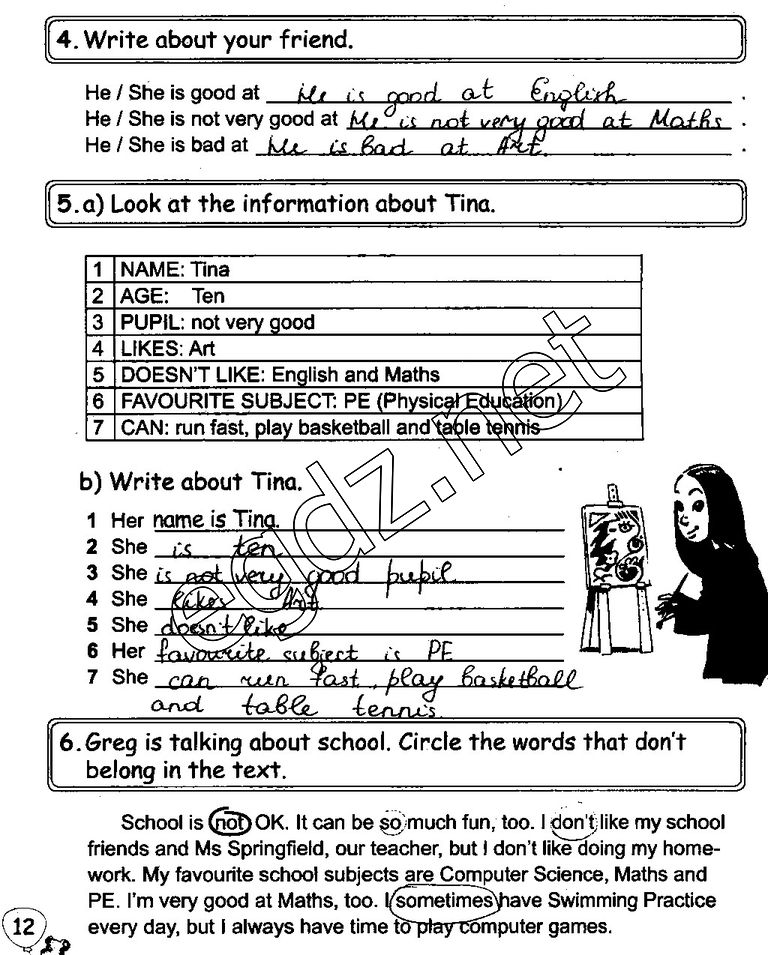 4. Write about your friend.
He / She is good at He is good at English .
He / She is not very good at He is not very good at Maths .
He / She is bad at He is bad at Art .
5. a) Look at the information about Tina.
1 NAME: Tina
2 AGE: Ten
3 PUPIL: not very good
4 LIKES: Art
5 DOESN'T LIKE: English and Maths
6 FAVOURITE SUBJECT: PE (Physical Education)
7 CAN: run fast, play basketball and table tennis
b) Write about Tina.
1 Her name is Tina.
2 She is ten
3 She is not very good pupil
4 She likes Art
5 She doesn't like
6 Her favourite subject is PE
7 She can run fast, play basketball
and table tennis.
6. Greg is talking about school. Circle the words that don't
belong in the text.
School is not OK. It can be so much fun, too. I don't like my school
friends and Ms Springfield, our teacher, but I don't like doing my home-
work. My favourite school subjects are Computer Science, Maths and
PE. I'm very good at Maths, too. I sometimes have Swimming Practice
every day, but I always have time to play computer games.
12
egdz.net